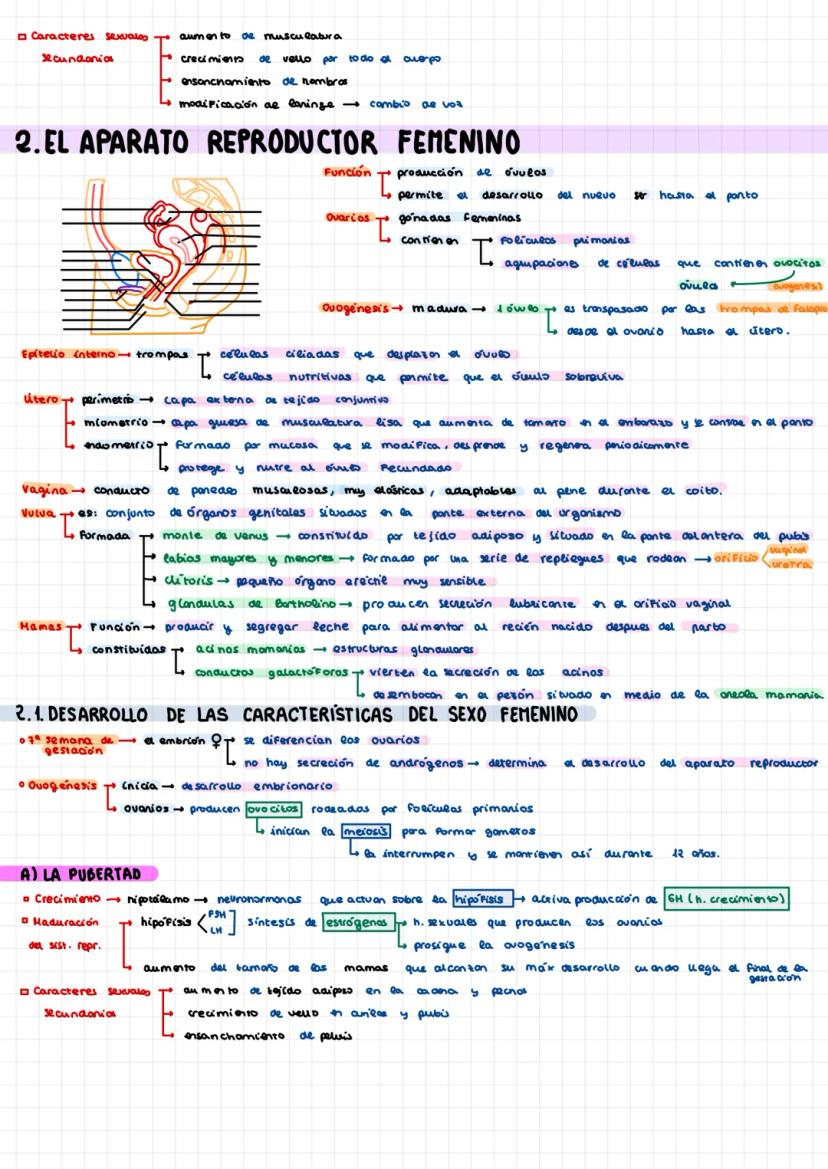 □ Caracteres sexuales → aumento de musculatura
secundarios → crecimiento de vello por todo el cuerpo
→ ensanchamiento de hombros
→ modificación de laringe → cambio de voz
2. EL APARATO REPRODUCTOR FEMENINO
Función → producción de óvulos
→ permite el desarrollo del nuevo ser hasta el parto
Ovarios → gónadas femeninas
→ contienen → folículos primarios
→ agrupaciones de células que contienen ovocitos
óvulos ← ovogénesis
Ovogénesis → madura → 1 óvulo → es transpasado por las trompas de falopio
→ desde el ovario hasta el útero.
Epitelio interno → trompas → células ciliadas que desplazan el óvulo
→ células nutritivas que permite que el óvulo sobreviva
Útero → perimetrio → capa externa de tejido conjuntivo
→ miometrio → capa gruesa de musculatura lisa que aumenta de tamaño en el embarazo y se contrae en el parto
→ endometrio → formado por mucosa que se modifica, desprende y regenera periodicamente
→ protege y nutre al óvulo fecundado
Vagina → conducto de paredes musculosas, muy elásticas, adaptables al pene durante el coito.
Vulva → es: conjunto de órganos genitales situados en la parte externa del organismo
→ formada → monte de venus → constituido por tejido adiposo y situado en la parte delantera del pubis
→ labios mayores y menores → formado por una serie de repliegues que rodean → orificio < vaginal
uretra
→ clítoris → pequeño órgano eréctil muy sensible
→ glándulas de Bartholino → producen secreción lubricante en el orificio vaginal
Mamas → Función → producir y segregar leche para alimentar al recién nacido despues del parto
→ constituidas → acinos mamarios → estructuras glandulares
→ conductos galactóforos → vierten la secreción de los acinos
→ desembocan en el pezón situado en medio de la areola mamaria
2.1. DESARROLLO DE LAS CARACTERÍSTICAS DEL SEXO FEMENINO
° 7ª semana de gestación → el embrión ♀ → se diferencian los ovarios
→ no hay secreción de andrógenos → determina el desarrollo del aparato reproductor
° Ovogénesis → inicia → desarrollo embrionario
→ ovarios → producen ovocitos rodeadas por folículas primarios
→ inician la meiosis para formar gametos
→ la interrumpen y se mantienen así durante 12 años.
A) LA PUBERTAD
▫ Crecimiento → hipotálamo → neurohormonas que actuan sobre la hipófisis → activa producción de GH (h. crecimiento)
▫ Maduración del sist. repr. → hipófisis < FSH LH ] síntesis de estrógenos → h. sexuales que producen los ovarios
→ prosigue la ovogénesis
→ aumento del tamaño de las mamas que alcanzan su máx desarrollo cuando llega el final de la gestación
□ Caracteres sexuales → aumento de tejido adiposo en la cadera y pechos
secundarios → crecimiento de vello en axilas y pubis
→ ensanchamiento de pelvis